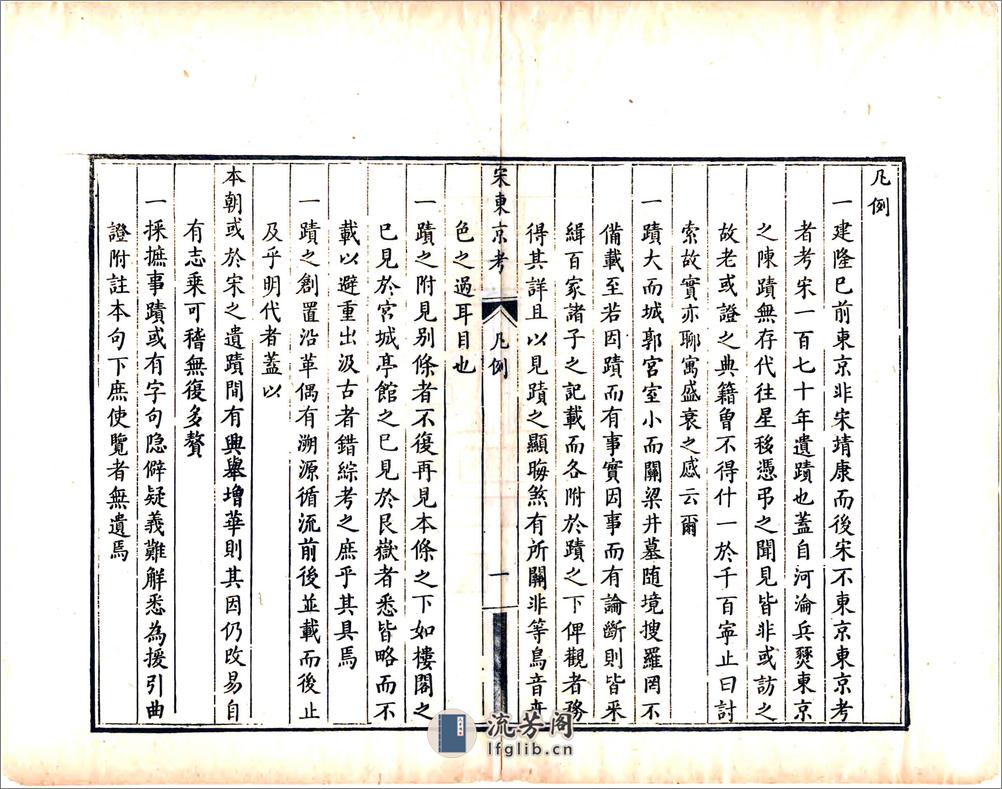 凡例
一建隆已前東京非宋靖康而後宋不東京東京考
者考宋一百七十年遺蹟也蓋自河淪兵燹東京
之陳蹟無存代往星移憑弔之聞見皆非或訪之
故老或證之典籍曽不得什一於千百寧止曰討
索故實亦聊寓盛衰之感云爾
一蹟大而城郭宮室小而關梁井墓随境搜羅罔不
備載至若因蹟而有事實因事而有論斷則皆采
緝百家諸子之記載而各附於蹟之下俾觀者務
得其詳且以見蹟之顯晦煞有所關非等鳥音卉
色之過耳目也
宋東京考
凡例
一
一蹟之附見别條者不復再見本條之下如樓閣之
已見於宮城亭館之已見於艮嶽者悉皆略而不
載以避重出汲古者錯綜考之庶乎其具焉
一蹟之創置沿革偶有溯源循流前後並載而後止
及乎明代者蓋以
本朝或於宋之遺蹟間有興舉增華則其因仍改易自
有志乘可稽無復多贅
一採摭事蹟或有字句隐僻疑義難解悉為援引曲
證附註本句下庶使覽者無遺焉
流芳阁
lfglib.cn